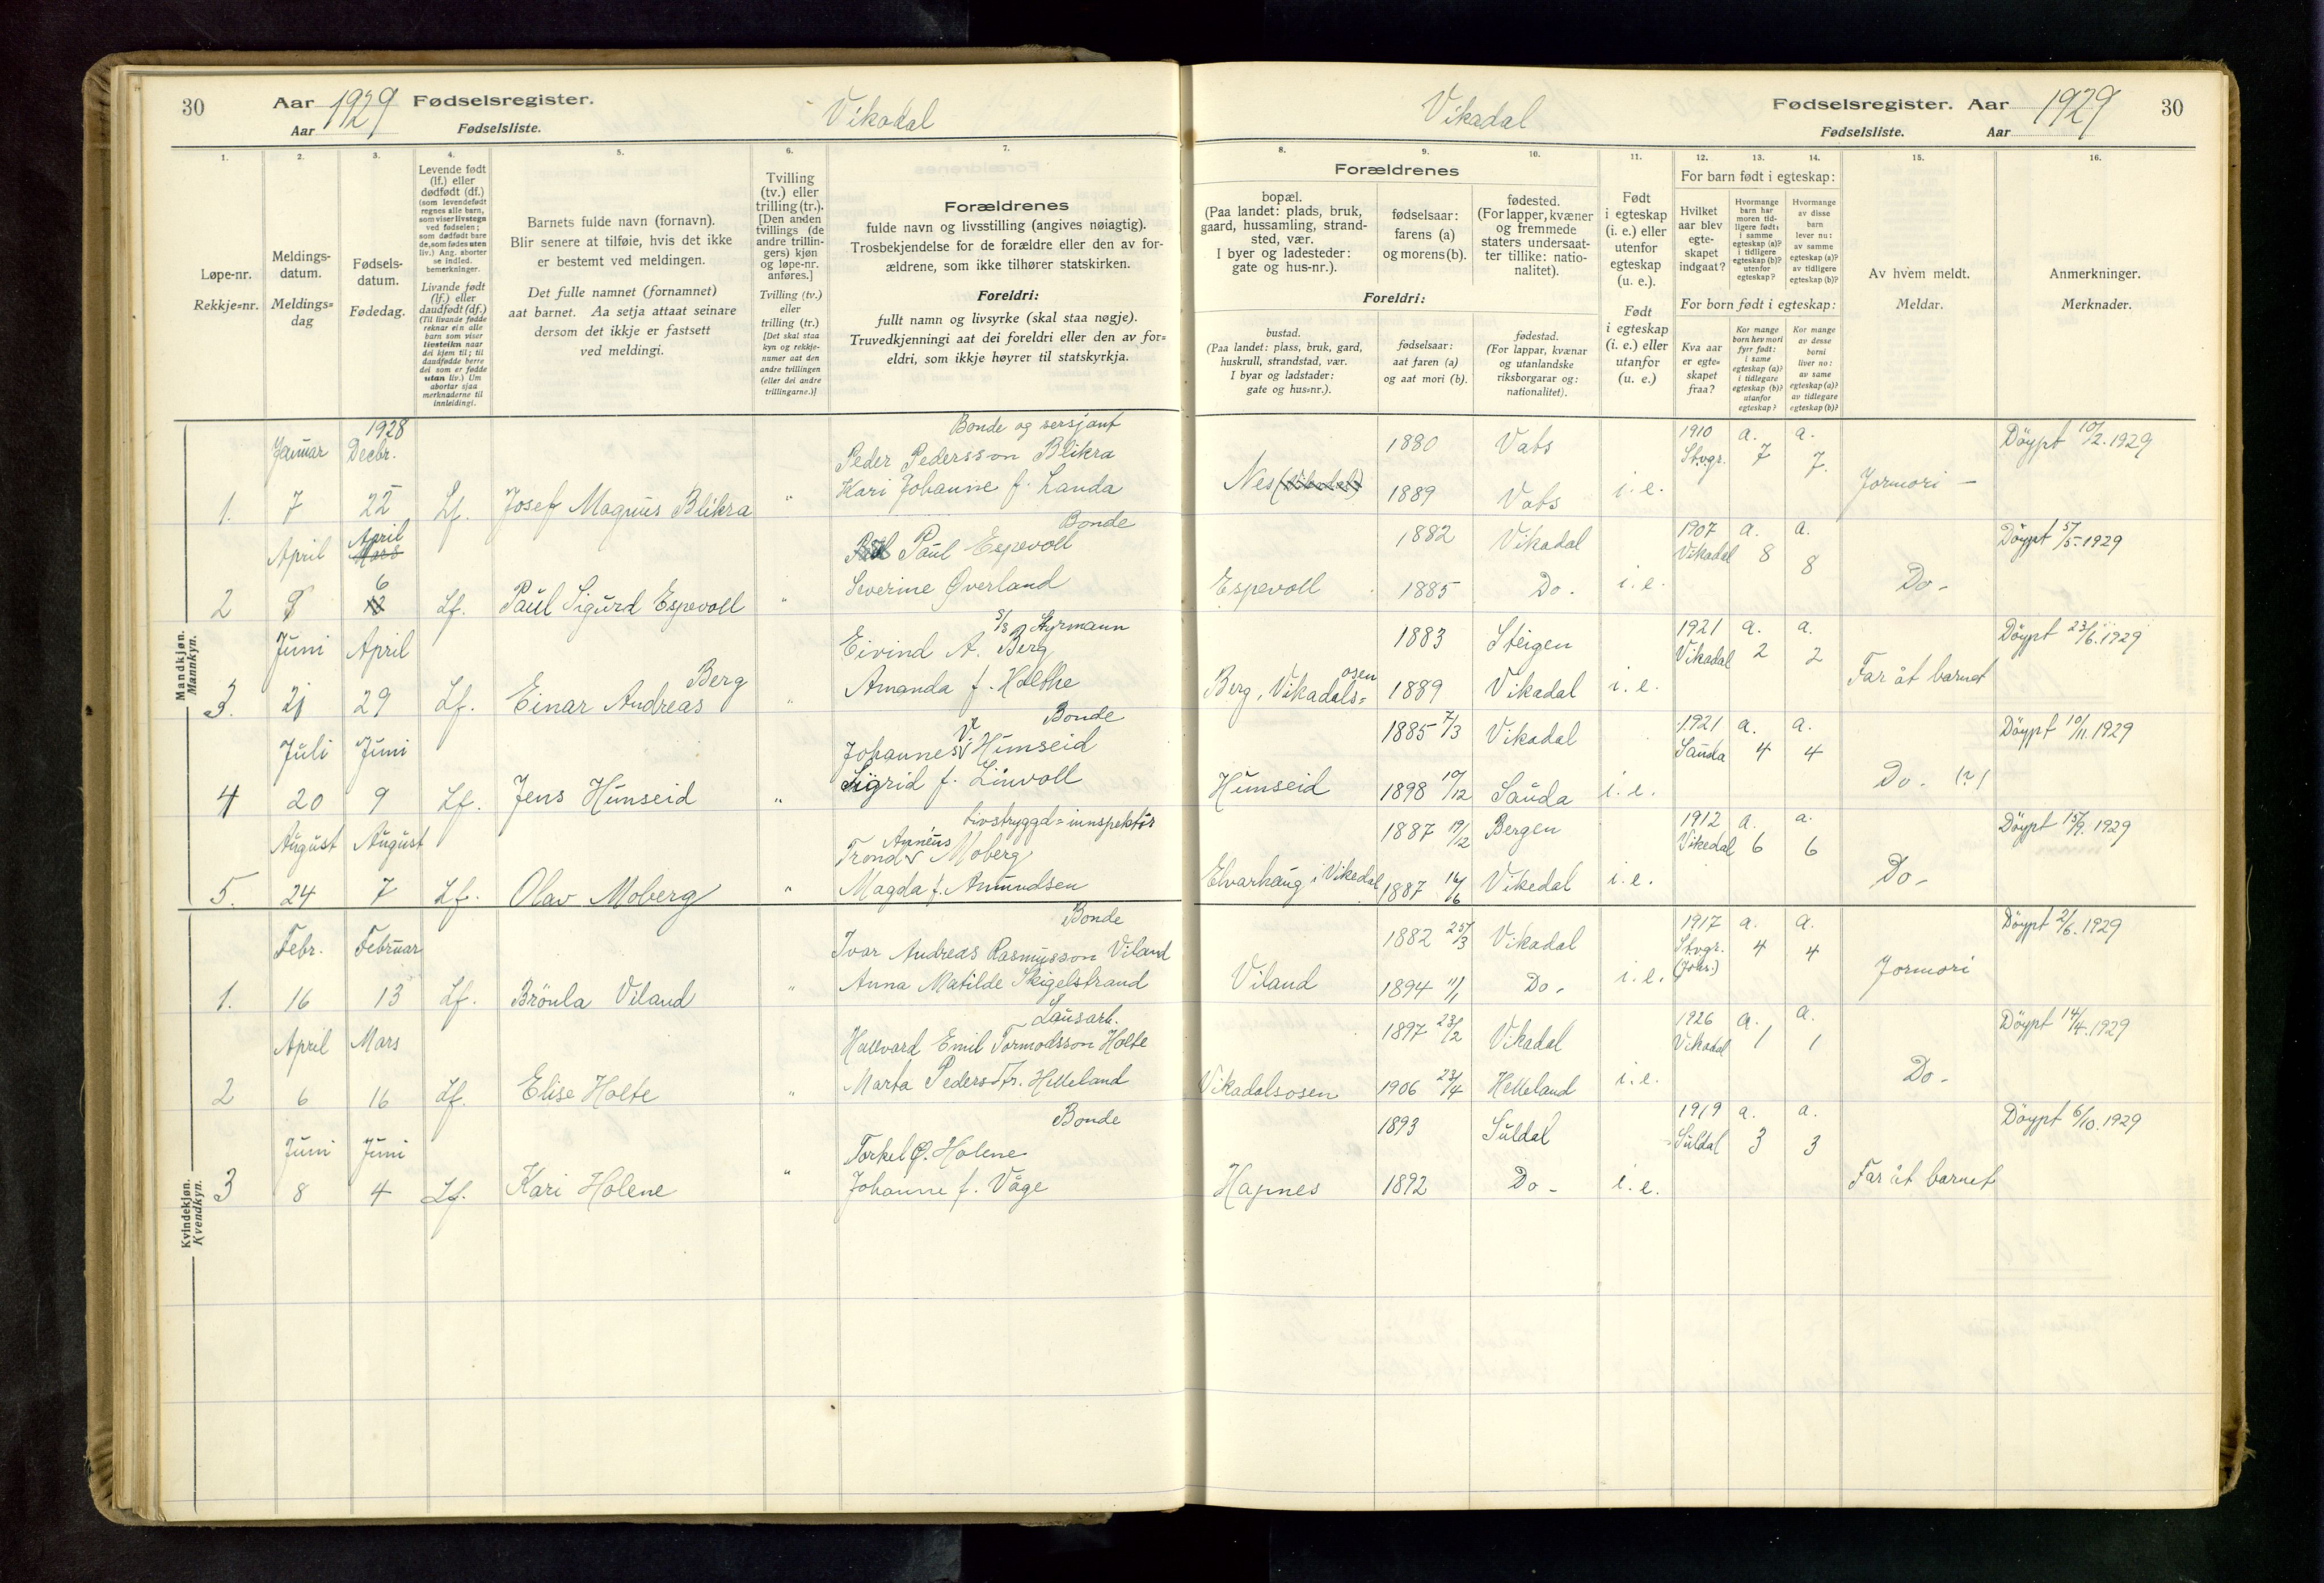 30 Aar 1929 Fødselsregister. Vikadal
Aar Fødselsliste.
1. 2. 3. 4. 5. 6. 7.
Løpe-nr.
Rekkje=nr.
Meldings-
datum.
Meldings=
dag
Fødsels-
datum.
Fødedag.
Levende født
(lf.) eller
dødfødt (df.)
(som levendefødt
regnes alle barn,
som viser livstegn
ved fødselen;
som dødfødt bare
de, som fødes uten
liv.) Ang. aborter
se indled.
bemerkninger.
Livande født
(lf.) eller
daudfødt (df.)
(Til livande fødde
reknar ein alle
barn som viser
livsteikn naar
dei kjem til; til
daudfødde berre
dei som er fødde
utan liv.) Um
abortar sjaa
merknaderne til
innleidingi.
Barnets fulde navn (fornavn).
Blir senere at tilføie, hvis det ikke
er bestemt ved meldingen.
Det fulle namnet (fornamnet)
aat barnet. Aa setja attaat seinare
dersom det ikkje er fastsett
ved meldingi.
Tvilling
(tv.) eller
trilling (tr.).
[Den anden
tvillings (de
andre trillin-
gers) kjøn
og løpe-nr.
anføres.]
Tvilling (tv.)
eller
trilling (tr.)
[Det skal staa
kyn og rekkje-
numer aat den
andre tvillingen
(eller dei andre
trillingarne.)]
Forældrenes
fulde navn og livsstilling (angives nøiagtig).
Trosbekjendelse for de forældre eller den av for-
ældrene, som ikke tilhører statskirken.
Foreldri:
fullt namn og livsyrke (skal staa nøgje).
Truvedkjenningi aat dei foreldri eller den av for=
eldri, som ikkje høyrer til statskyrkja.
Mandkjøn.
Mannkyn.
1928
Bonde og sersjant
Januar Decbr. Peder Pedersson Blikra
1. 7 22 Lf. Josef Magnus Blikra " Kari Johanne f. Landa
April
Bonde
April Mars Paul Espevoll
6
2 9 12 Lf. Paul Sigurd Espevoll " Severine Øverland
S/S Styrmann
Juni April Eivind A. Berg
Berg
3. 21 29 Lf. Einar Andreas " Amanda f. Holthe
Bonde
Juli Juni Johannes V. Hunseid
4 20 9 Lf. Jens Hunseid " Sigrid f. Linvoll
Livstryggd=innspektör
August August Trond Moberg
5. 24 7 Lf. Olav Moberg " Magda f. Amundsen
Kvindekjøn.
Kvendkyn.
Bonde
Febr. Februar Ivar Andreas Rasmusson Viland
1. 16 13 Lf. Brönla Viland " Anna Matilde Skigelstrand
Lausarb.
April Mars Hallvard Emil Tormodsson Holte
2 6 16 Lf. Elise Holte " Marta Pedersdtr. Helleland
Bonde
Juni Juni Torkel Ø. Holene
3 8 4 Lf. Kari Holene " Johanne f. Våge
Vikadal Fødselsregister. Aar 1929 30
Fødselsliste. Aar
8. 9. 10. 11. 12. 13. 14. 15. 16.
Forældrenes
bopæl.
(Paa landet: plads, bruk,
gaard, hussamling, strand-
sted, vær.
I byer og ladesteder:
gate og hus-nr.).
Foreldri:
bustad.
(Paa landet: plass, bruk, gard,
huskrull, strandstad, vær.
I byar og ladstader:
gate og hus=nr.).
fødselsaar:
farens (a)
og morens (b).
fødselsaar:
aat faren (a)
og aat mori (b).
fødested.
(For lapper, kvæner
og fremmede
staters undersaat-
ter tillike: natio-
nalitet).
fødestad.
(For lappar, kvænar
og utanlandske
riksborgarar og:
nationalitet).
Født
i egteskap
(i. e.) eller
utenfor
egteskap
(u. e.).
Født
i egteskap
(i. e.) eller
utanfor
(u. e.)
For barn født i egteskap:
Hvilket
aar blev
egte-
skapet
indgaat?
Hvormange
barn har
moren tid-
ligere født:
i samme
egteskap (a)?
i tidligere
egteskap (b)?
utenfor
egteskap?
Hvormange
av disse
barn
lever nu:
av samme
egteskap (a)?
av tidligere
egteskap (b)?
For born født i egteskap:
Kva aar
er egte=
skapet
fraa?
Kor mange
born hev mori
fyrr født:
i same
egteskap (a)?
i tidlegare
egteskap (b)?
utanfor
egteskap?
Kor mange
av desse
borni
liver no:
av same
egteskap (a)?
av tidlegare
egteskap (b)?
Av hvem meldt.
Meldar.
Anmerkninger.
Merknader.
1880 Vats 1910 a. a. Döypt 10/2. 1929
Stvgr. 7 7.
Nes (Vikadal) 1889 Vats i. e. Jormori —
1882 Vikadal 1907 a. a. Döypt 5/5. 1929
Vikadal 8 8
Espevoll 1885 Do. i. e. Do-
1883 Steigen 1921 a. a. Döypt 23/6. 1929
Vikadal 2 2
osen
Berg, Vikadals= 1889 Vikadal i. e. Far åt barnet
1885 7/3 Vikadal 1921 a. a. Döypt 10/11. 1929
Sauda 4 4
Hunseid 1898 10/12 Sauda i. e. Do. (?)
1887 19/12 Bergen 1912 a. a. Döypt 15/9. 1929
Vikedal 6 6
Elvarhaug i Vikedal 1887 Vikedal i. e. Do-
1882 25/3 Vikadal 1917 a. a. Döypt 2/6. 1929
Stvgr. 4 4
Viland 1894 11/1 Do. i. e. Jormori
1897 23/2 Vikadal 1926 a. a. Döypt 14/4. 1929
Vikadal 1 1
Vikadalsosen 1906 23/4 Helleland i. e. Do-
1893 Suldal 1919 a. a. Döypt 6/10. 1929
Suldal 3 3
Hapnes 1892 Do- i. e. Far åt barnet